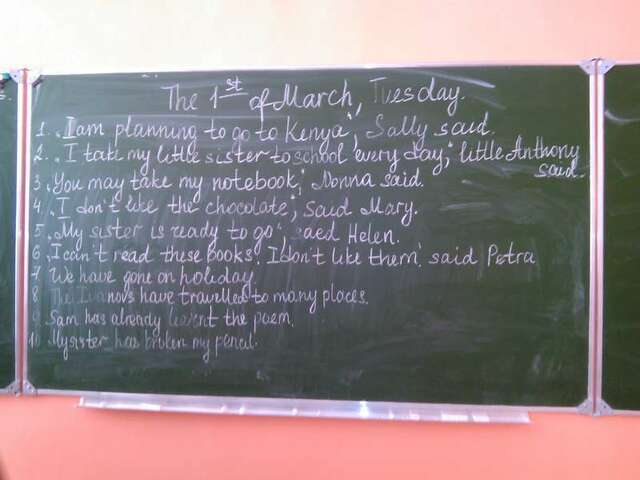 The 1st of March, Tuesday.
1. „I am planning to go to Kenya“, Sally said.
2. „I take my little sister to school every day“, little Anthony
said.
3. „You may take my notebook“, Nonna said.
4. „I don't like the chocolate“, said Mary.
5. „My sister is ready to go“, saed Helen.
6. „I can't read these books. I don't like them“, said Petra
7 We have gone on holiday.
8 The Ivanovs have travelled to many places.
9 Sam has already learnt the poem.
10. My sister has broken my pencil.
s.